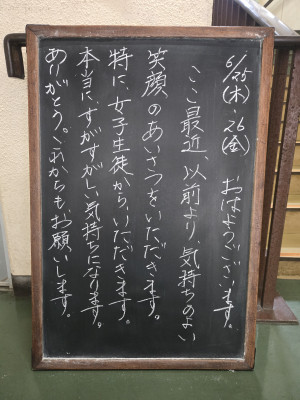 6/25(木)・26(金) おはようございます。
ここ最近、以前より、気持ちのよい
笑顔のあいさつをいただきます。
特に、女子生徒から、いただきます。
本当に、すがすがしい気持ちになります。
ありがとう。これからも、お願いします。